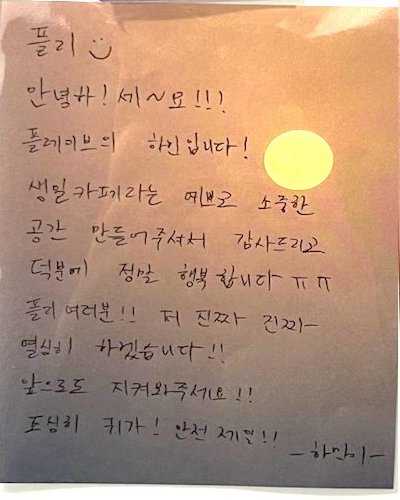 플리 :)
안녕하!세~요!!!
플레이브의 하민입니다!
생일카페라는 예쁘고 소중한
공간 만들어주셔서 감사드리고
덕분에 정말 행복합니다ㅠㅠ
플리여러분!! 저 진짜 진짜
열심히 하겠습니다!!
앞으로도 지켜봐주세요!!
조심히 귀가! 안전제일!!
-하민이-